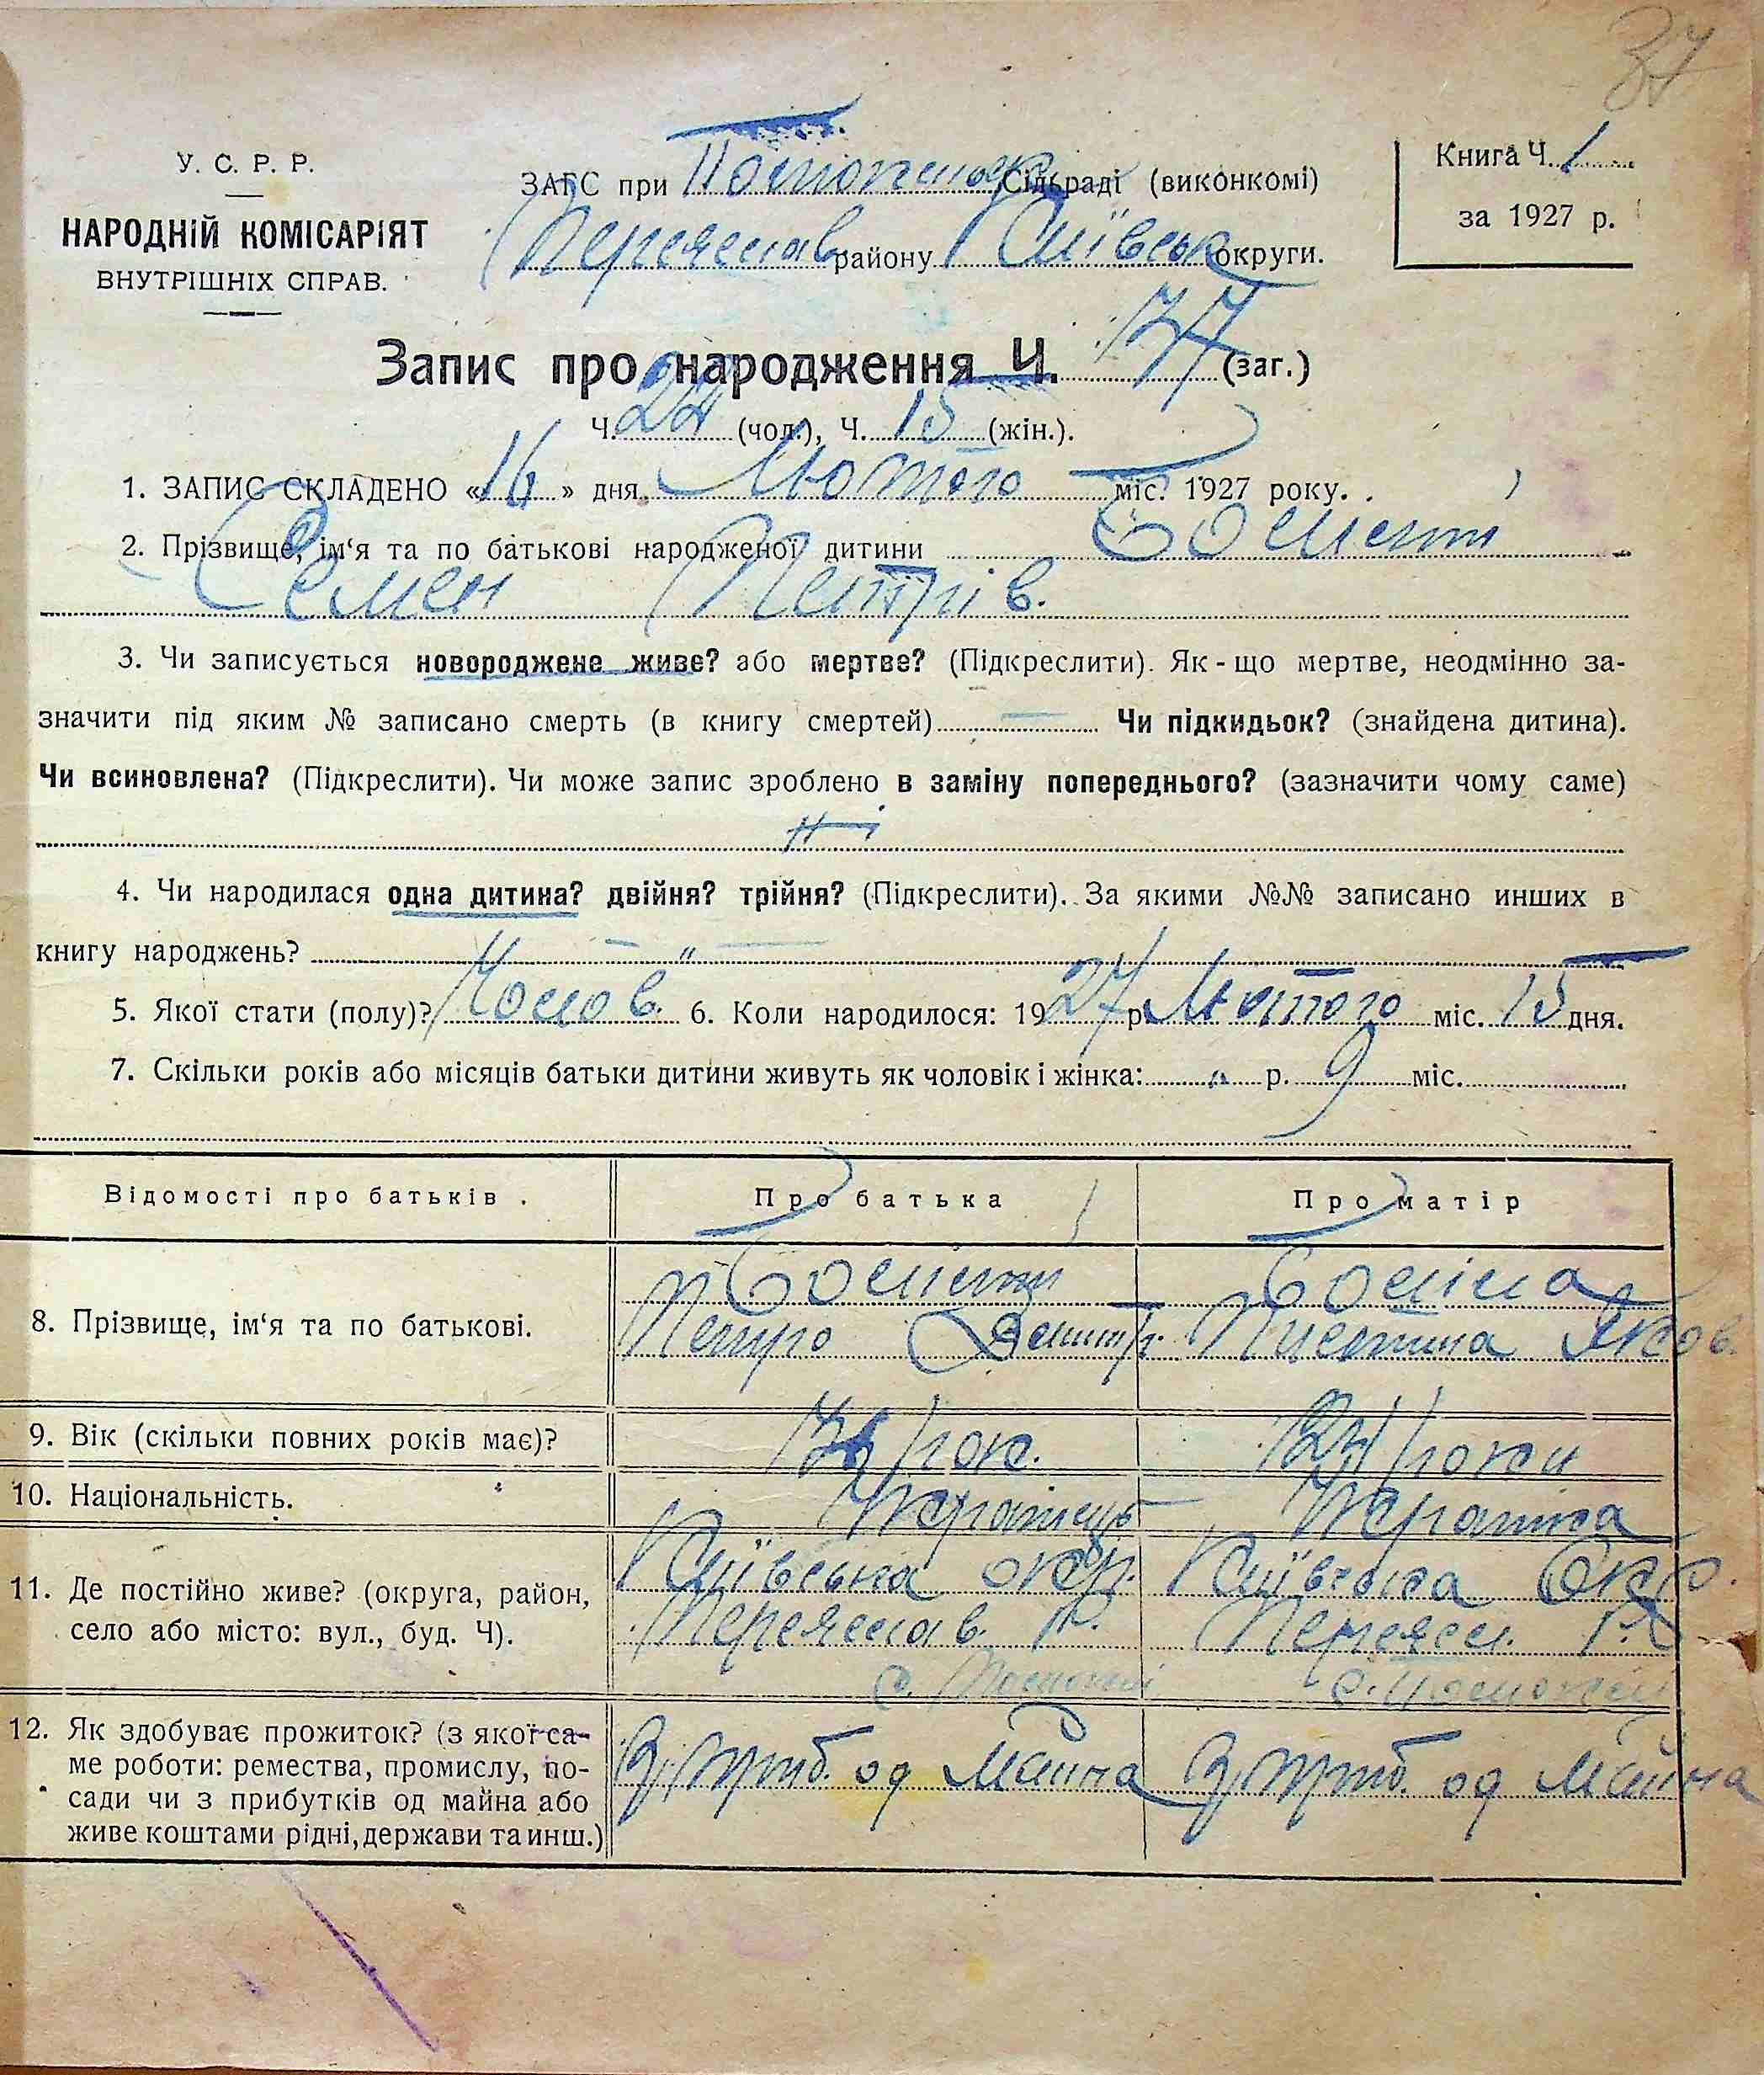 37
У. С. Р. Р.
НАРОДНІЙ КОМІСАРІЯТ
ВНУТРІШНІХ СПРАВ.
ЗАГС при Сільраді (виконкомі)
Переяслав району Київськ округи.
Книга Ч. 1
за 1927 р.
Запис про народження Ч. 37 (заг.)
Ч. 22 (чол.), Ч. 15 (жін.).
1. ЗАПИС СКЛАДЕНО «16» дня Лютого міс. 1927 року.
2. Прізвище, ім‘я та по батькові народженої дитини
Семен Петрів.
3. Чи записується новороджене живе? або мертве? (Підкреслити). Як-що мертве, неодмінно за-
значити під яким № записано смерть (в книгу смертей) — Чи підкидьок? (знайдена дитина).
Чи всиновлена? (Підкреслити). Чи може запис зроблено в заміну попереднього? (зазначити чому саме)
Ні
4. Чи народилася одна дитина? двійня? трійня? (Підкреслити). За якими №№ записано инших в
книгу народжень? — „ —
5. Якої стати (полу)? Чолов. 6. Коли народилося: 1927 р. Лютого міс. 15 дня.
7. Скільки років або місяців батьки дитини живуть як чоловік і жінка: „ р. 9 міс.
Відомості про батьків. Про батька Про матір
8. Прізвище, ім‘я та по батькові.
Петро Яков.
9. Вік (скільки повних років має)? рок. роки
10. Національність. Українець Українка
11. Де постійно живе? (округа, район,
село або місто: вул., буд. Ч).
Київська окр. Київська Окр.
Переяслав. Р. Переясл. Р.
12. Як здобуває прожиток? (з якої са-
ме роботи: ремества, промислу, по-
сади чи з прибутків од майна або
живе коштами рідні, держави та инш.)
З приб. од Майна З приб. од Майна